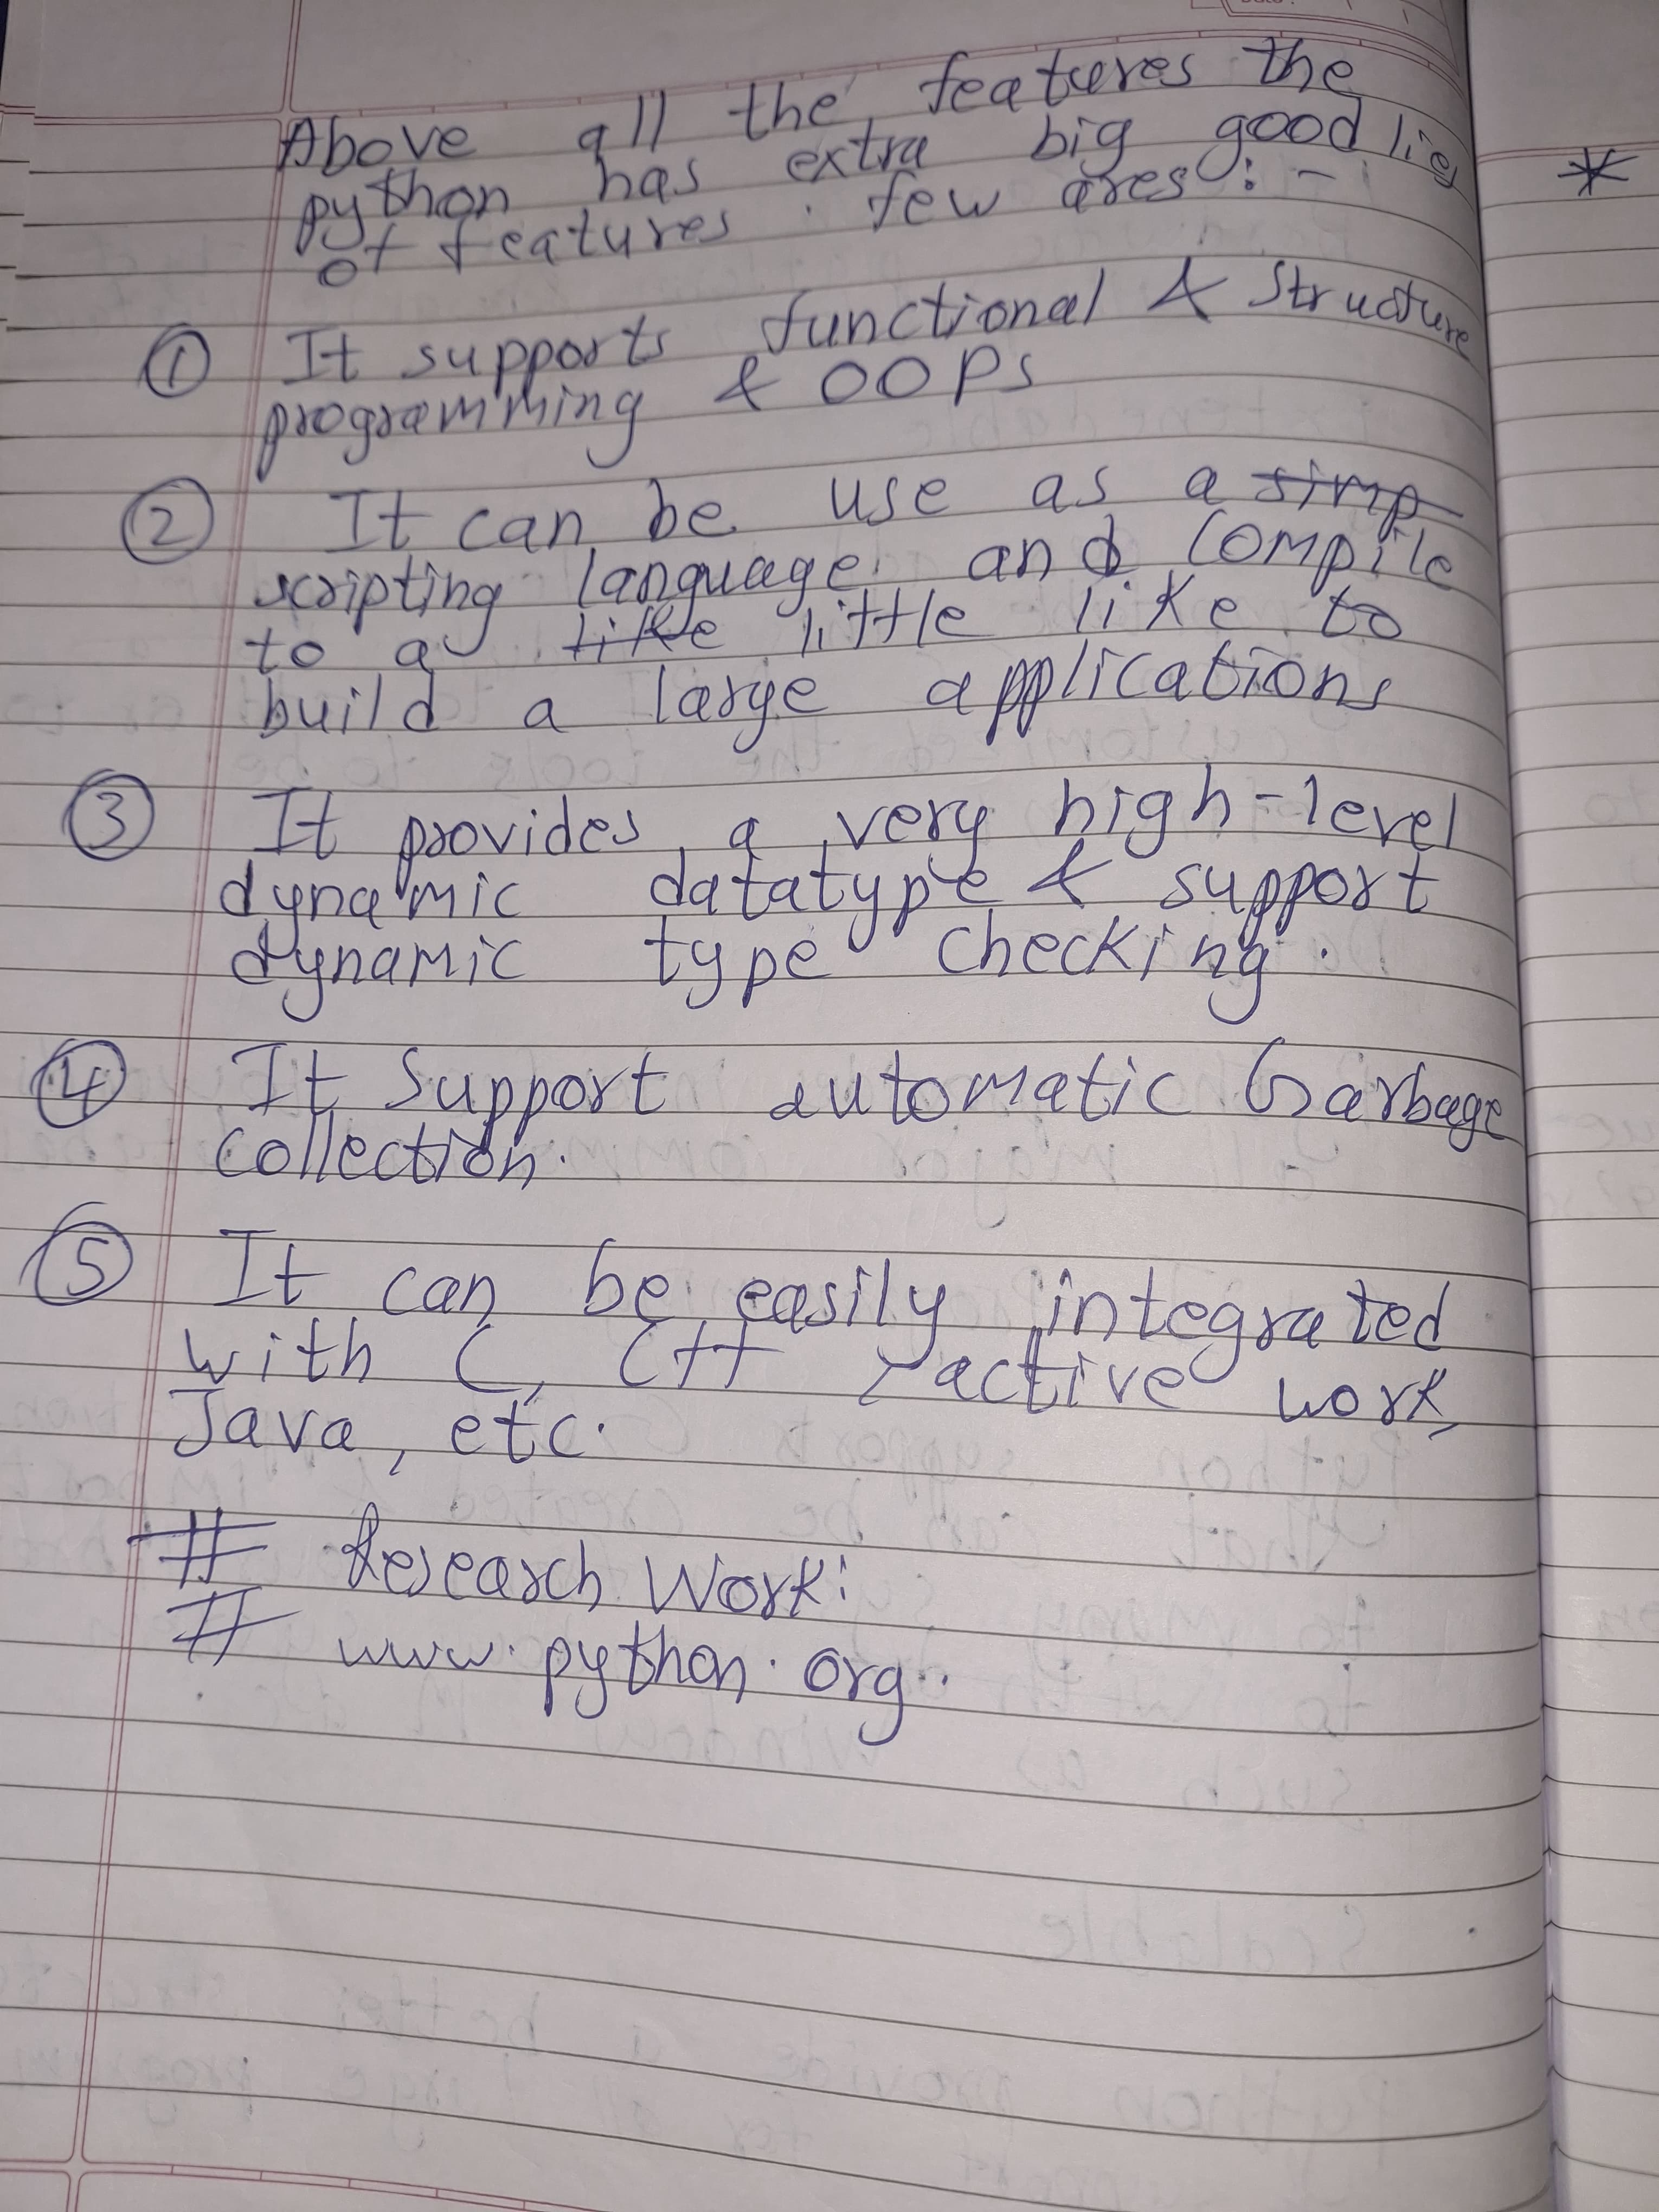 Above all the features the
python has extra big good lies
of features. few ares :-
① It supports functional & Structure
programming & OOPs
② It can be use as a simp
scripting language and compile
to a like little like to
build a large applications
③ It provides a very high-level
dynamic datatype & support
dynamic type checking.
④ It Support automatic Garbage
collection.
⑤ It can be easily integrated
with C, C++ active work,
Java, etc.
# Research Work:
# www.python.org..
*